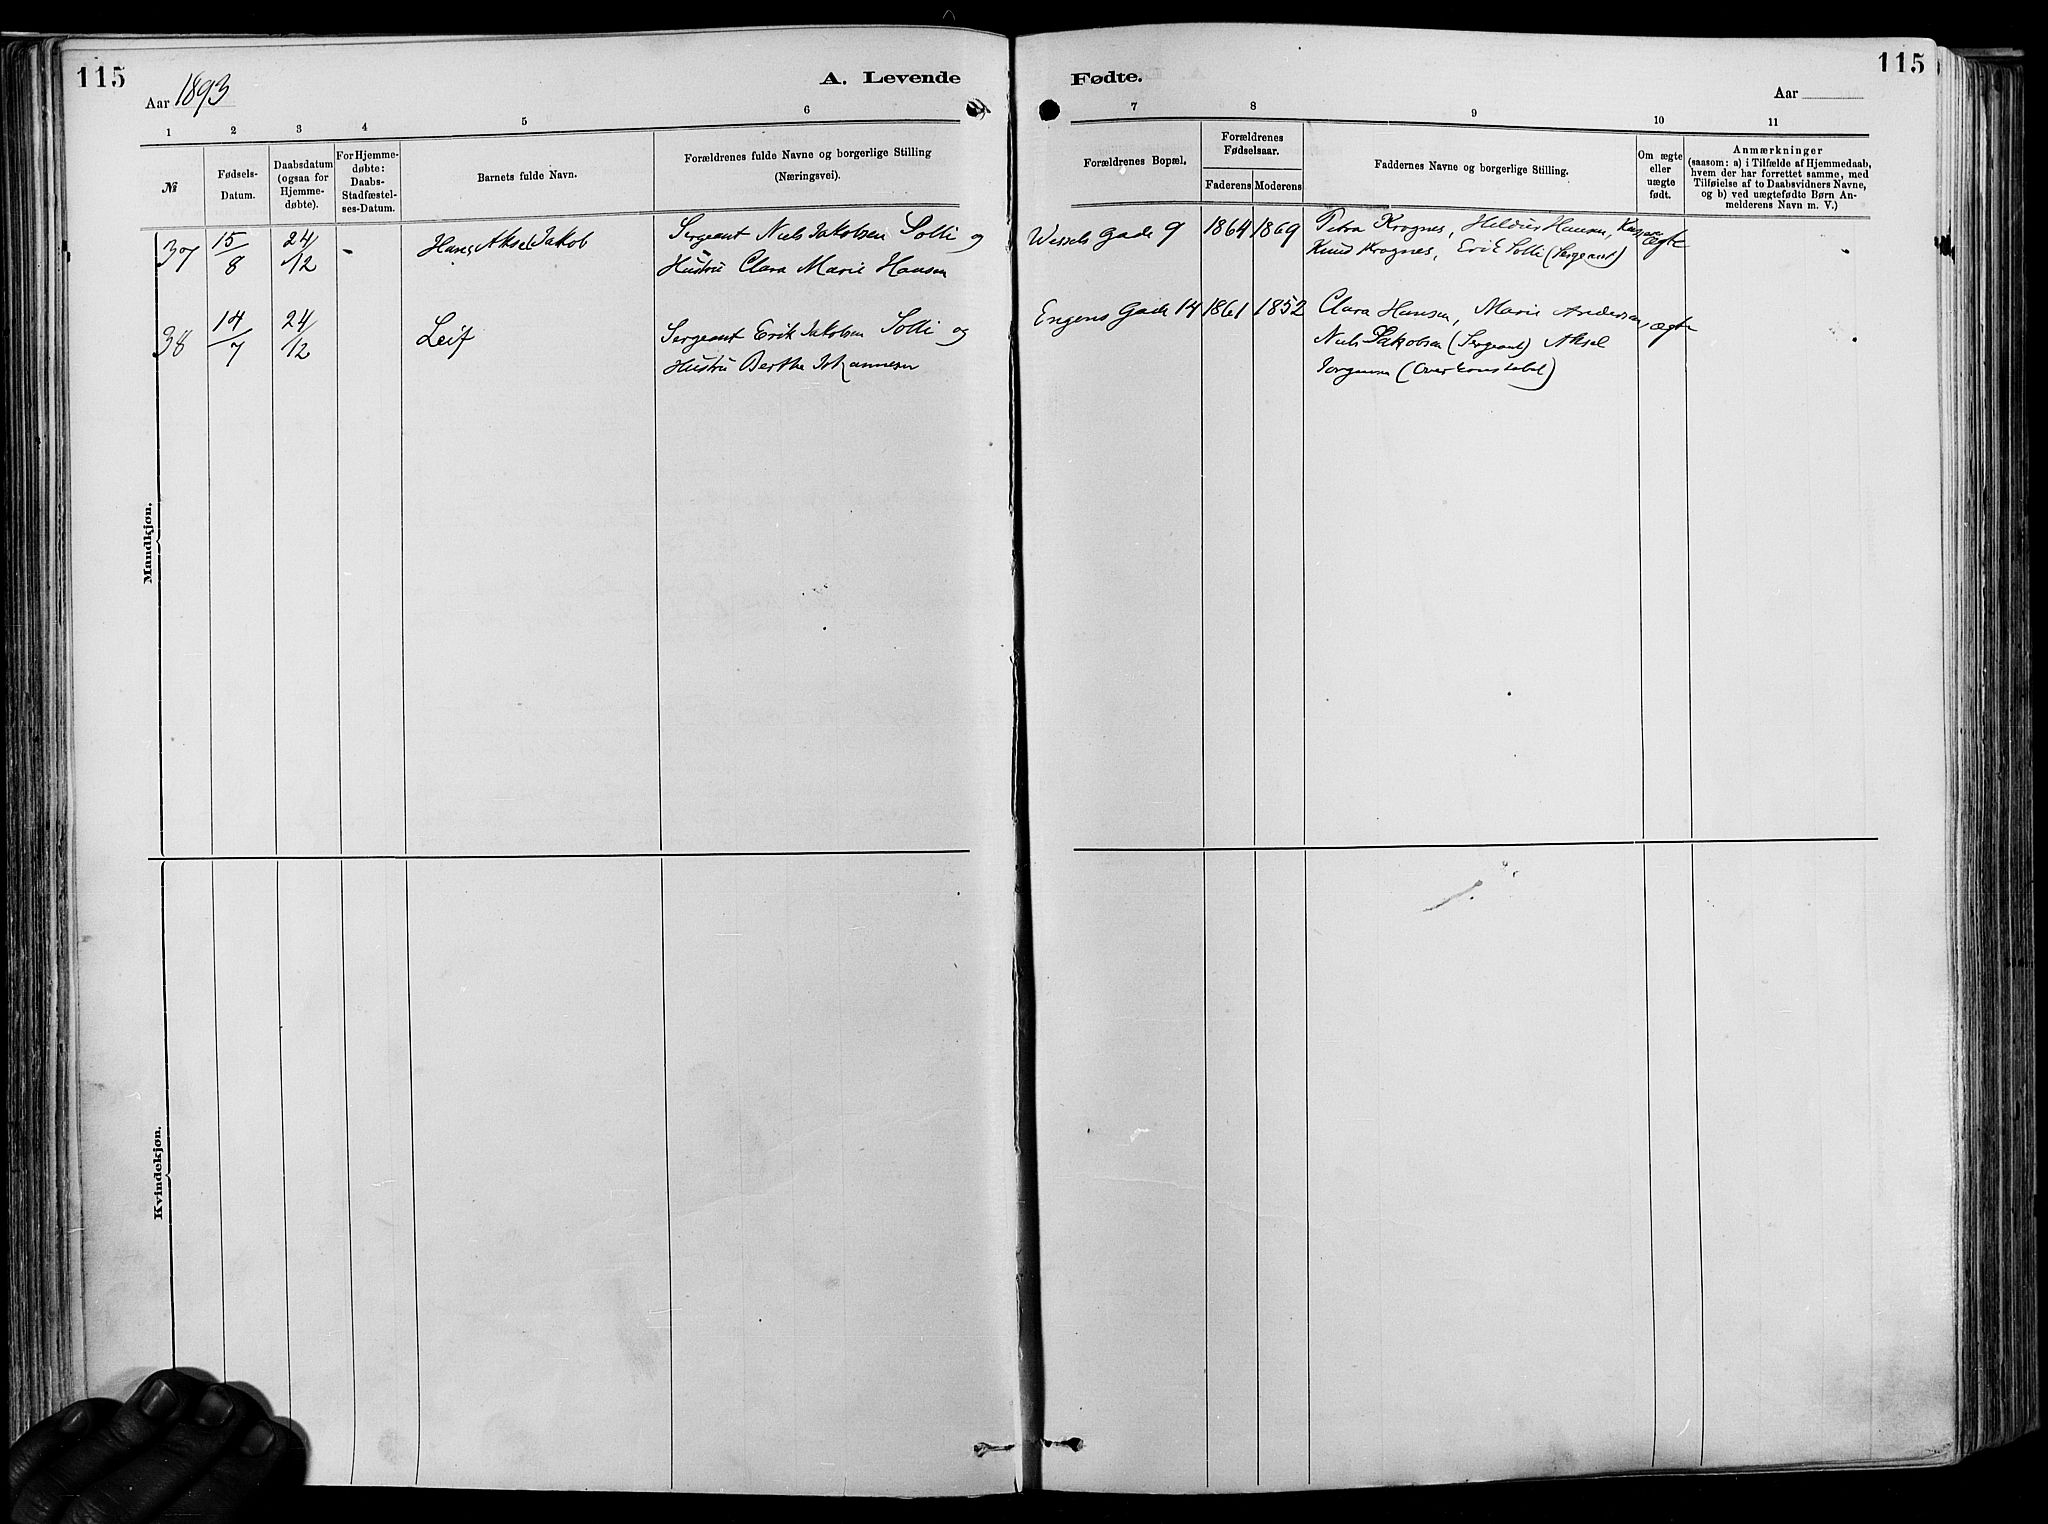 115
Aar 1893
A. Levende
Fødte.
115
Aar
1
2
3
4
5
6
7
8
9
10
11
№
Fødsels-
Datum.
Daabsdatum
(ogsaa for
Hjemme-
døbte).
For Hjemme-
døbte:
Daabs-
Stadfæstel-
ses-Datum.
Barnets fulde Navn.
Forældrenes fulde Navne og borgerlige Stilling
(Næringsvei).
Forældrenes Bopæl.
Forældrenes
Fødselsaar.
Faderens
Moderens
Faddernes Navne og borgerlige Stilling.
Om ægte
eller
uægte
født.
Anmærkninger
(saasom: a) i Tilfælde af Hjemmedaab,
hvem der har forrettet samme, med
Tilføielse af to Daabsvidners Navne,
og b) ved uægtefødte Børn An-
melderens Navn m. V.)
Mandkjøn.
37
15/8
24/12
-
Hans Aksel Jakob
Sergeant Niels Jakobsen Solli og
Hustru Clara Marie Hansen
Wessels Gade 9
1864
1869
Petra Krognes, Hansen,
Knud Krognes, Erik Solli (Sergeant)
ægte
38
14/7
24/12
Leif
Sergeant Erik Jakobsen Solli og
Hustru Berthe Johannesen
Engens Gade 14
1861
1852
Clara Hansen, Marie Andersen,
Niels Jakobsen (Sergeant) Aksel
Jorgensen (Overkonstabel)
ægte
Kvindekjøn.